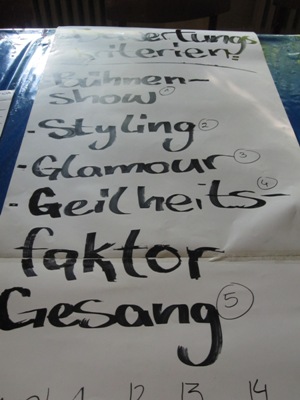 Bewertungs
kriterien:
Bühnen-
show 1
- Styling 2
- Glamour 3
- Geilheits- 4
faktor
Gesang 5
12 13 14